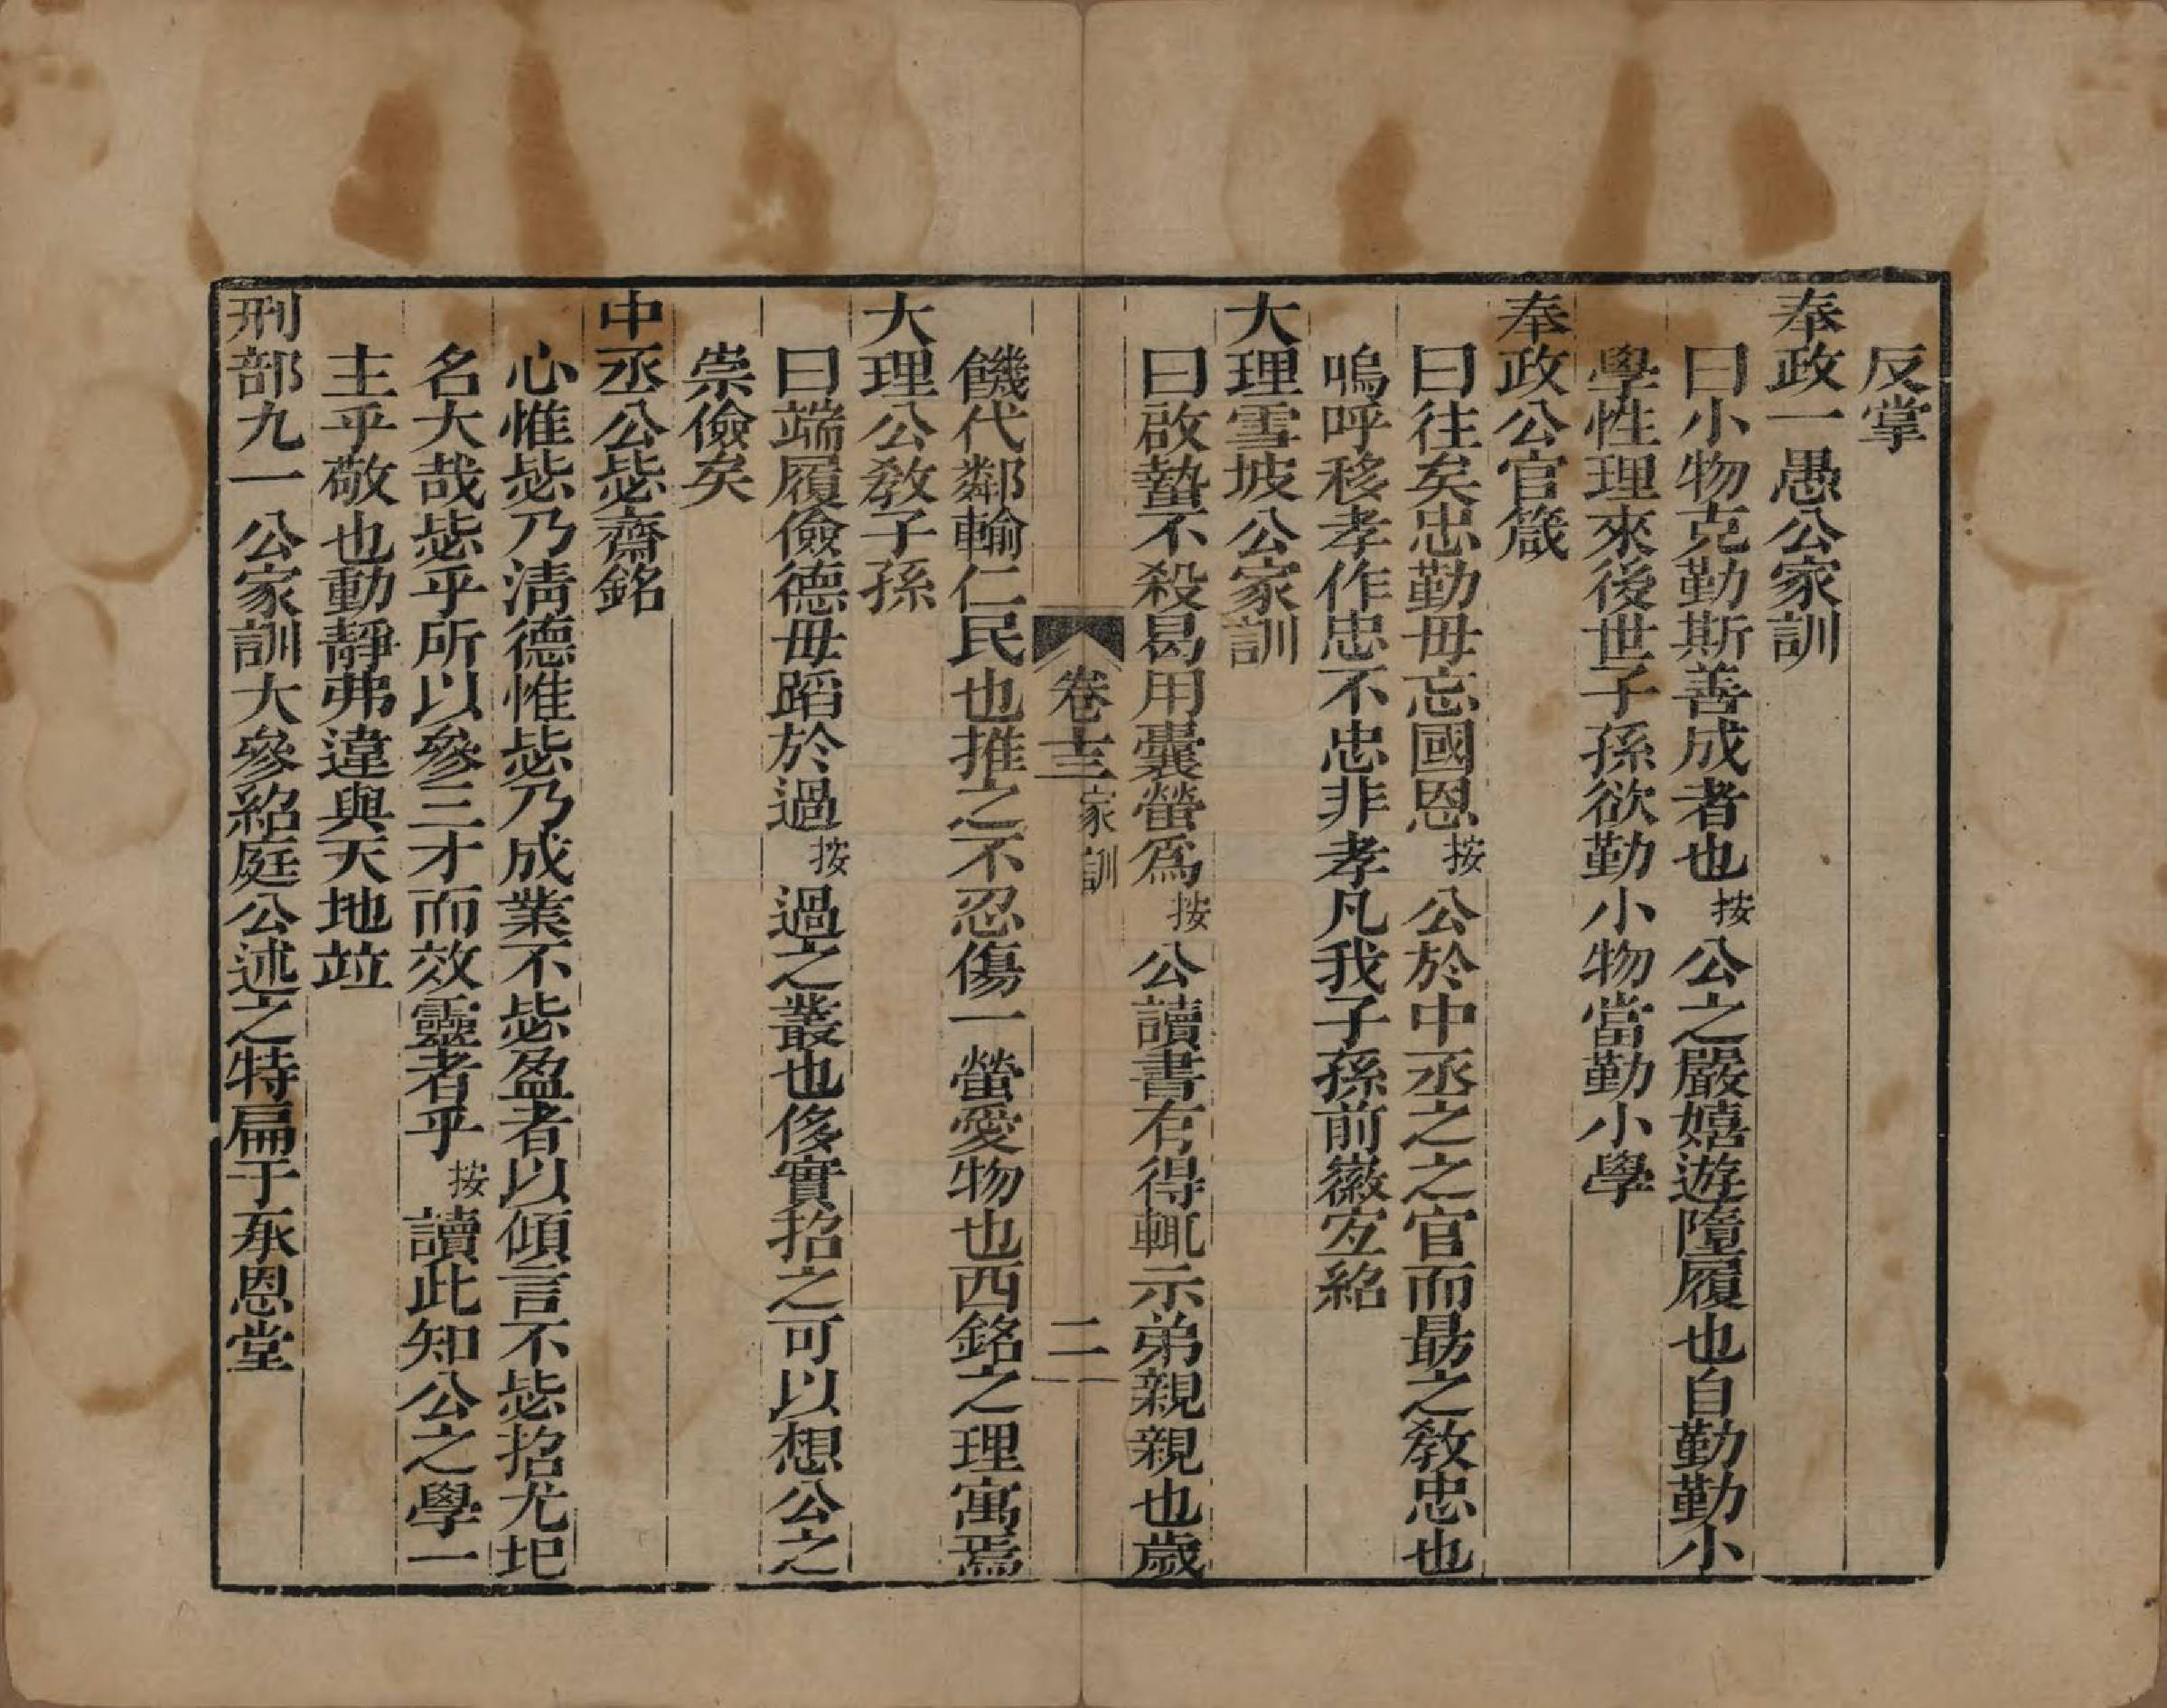 反掌
奉政一愚公家訓
曰小物克勤斯善成者也按公之嚴嬉遊隳履也自勤勤小
學性理來後世子孫欲勤小物當勤小學
奉政公官箴
曰往矣忠勤毋忘國恩按公於中丞之之官而勗之敎忠也
嗚呼移孝作忠不忠非孝凡我子孫前徽宐紹
大理雪坡公家訓
曰啟蟄不殺曷用囊螢爲按公讀書有得輒示弟親親也歲
卷十三家訓 二
饑代鄰輸仁民也推之不忍傷一螢愛物也西銘之理寓焉
大理公敎子孫
曰端履儉德毋蹈於過按過之叢也侈實招之可以想公之
崇儉矣
中丞公毖齋銘
心惟毖乃淸德惟毖乃成業不毖盈者以傾言不毖招尤圯
名大哉毖乎所以參三才而效靈者乎按讀此知公之學一
主乎敬也動靜弗違與天地竝
刑部九一公家訓大參紹庭公述之特扁于承恩堂